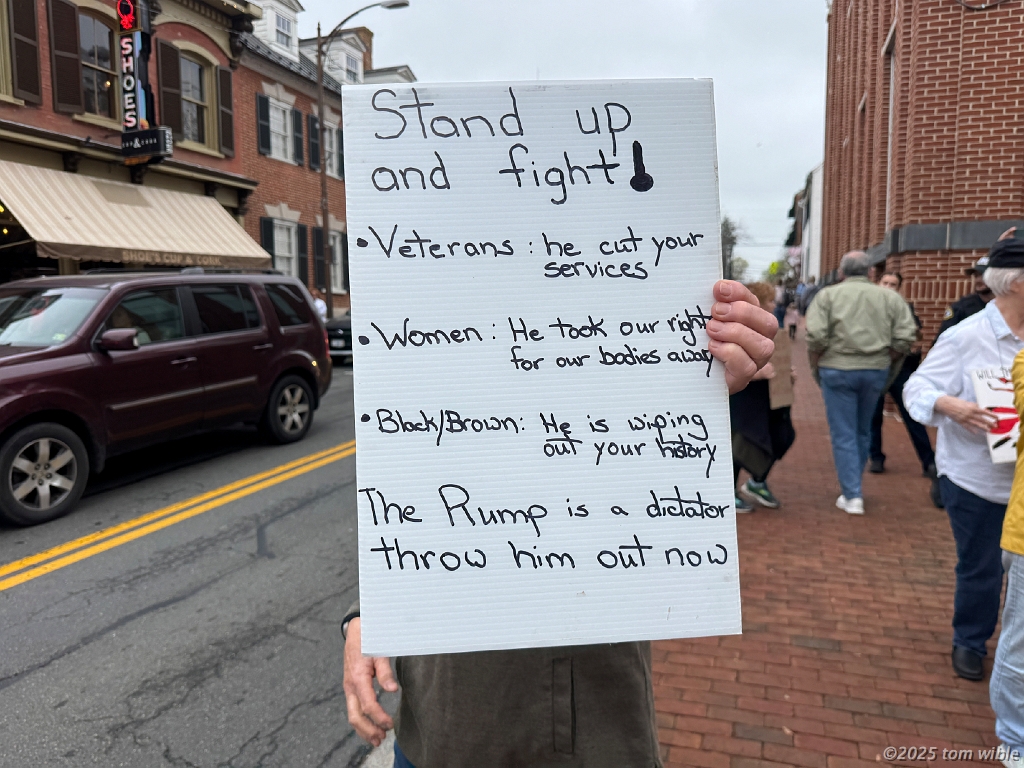 SHOES
CUP & CORK
SHOE'S CUP & CORK
Stand up
and fight!
• Veterans : he cut your
services
• Women : He took our right
for our bodies away
• Black/Brown: He is wiping
out your history
The Rump is a dictator
throw him out now
WILL
©2025 tom wible